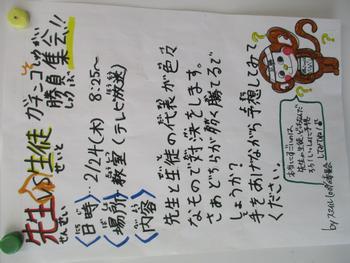 先生VS生徒
せんせい せいと
ガチンコ
勝負集会!!
しょうぶ
〈日時〉…2/24(木) 8:25〜
〈場所〉教室(テレビ放送)
〈内容〉
先生と生徒の代表が色々
なもので対決をします。
さあどちらが勝てるで
しょうか?
手をあげながら予想してみて
ください。